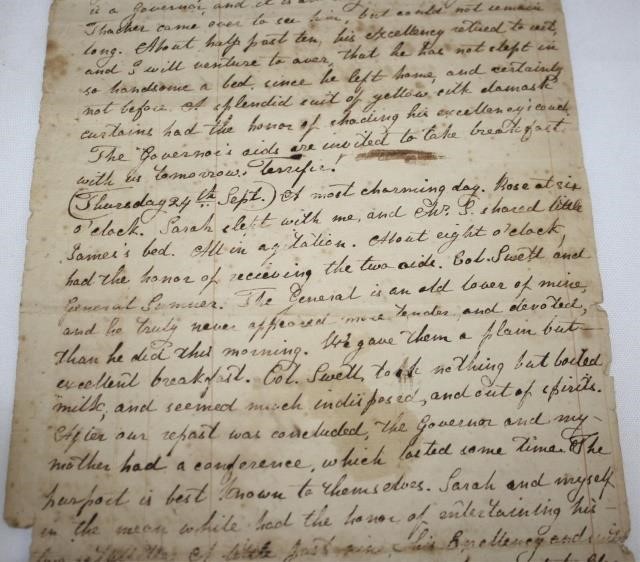 is a Governor, and it is an
Thacher came over to see him, but could not remain
long. About half past ten, his excellency retired to rest,
and I will venture to aver, that he has not slept in
so handsome a bed, since he left home, and certainly
not before. A splendid suit of yellow silk damask
curtains had the honor of shading his excellency's couch
The Governor's aids are invited to take breakfast
with us tomorrow. Terrific!
(Thursday 24th Sept.) A most charming day. Rose at six
o'clock. Sarah slept with me, and Mr. S. shared little
James's bed. All in agitation. About eight o'clock,
had the honor of recieving the two aids. Col. Swett and
General Sumner. The General is an old lover of mine,
and he truly never appeared more tender, and devoted,
than he did this morning. We gave them a plain but
excellent breakfast. Col. Swett, took nothing but boiled
milk, and seemed much indisposed, and out of spirits.
After our repast was concluded, the Governor and my
mother had a conference, which lasted some time. The
purport is best known to themselves. Sarah and myself
in the mean while had the honor of entertaining his
His Excellency and